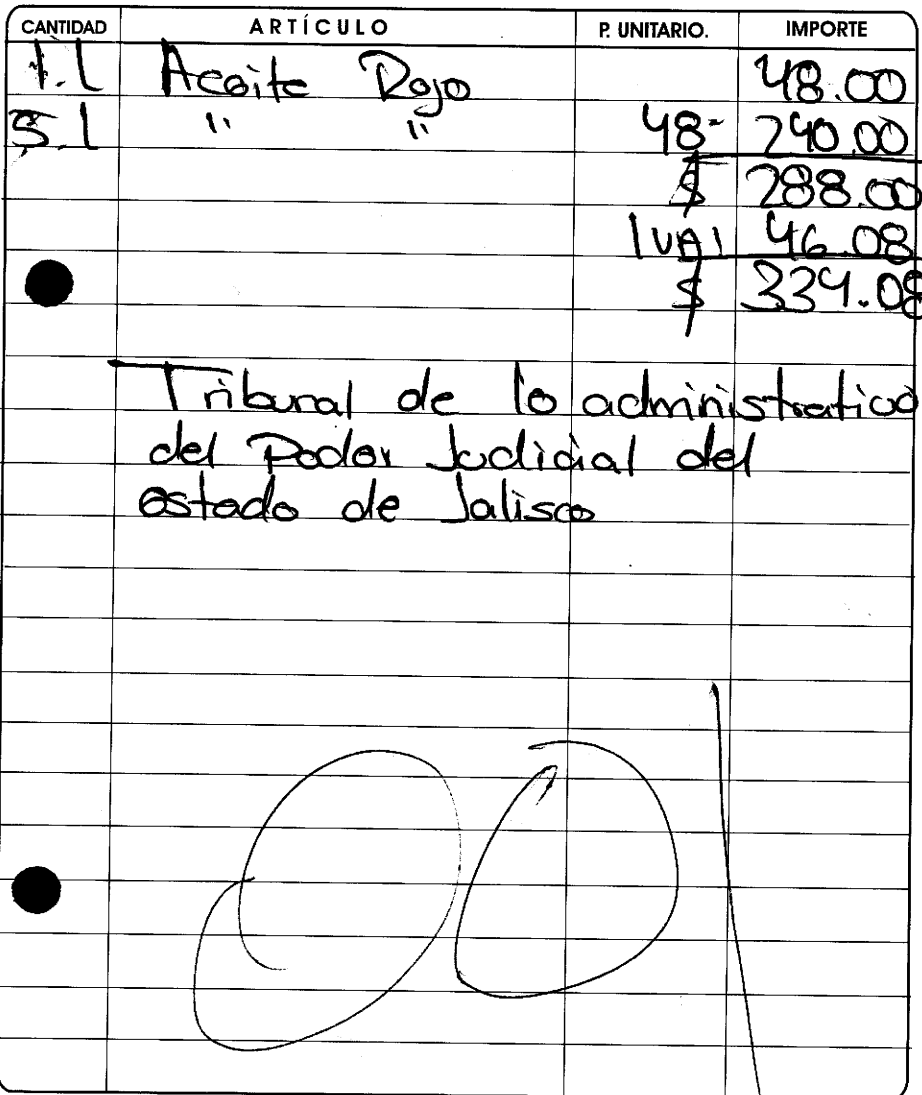 CANTIDAD ARTÍCULO P. UNITARIO. IMPORTE
1.L Aceite Rojo 48.00
5.L " " 48- 240.00
$ 288.00
IVA 46.08
$ 334.08
Tribunal de lo administrativo
del Poder Judicial del
estado de Jalisco